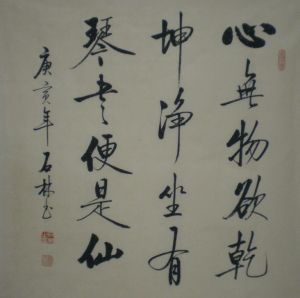 心無物欲乾
坤净坐有
琴书便是仙
庚寅年石林书